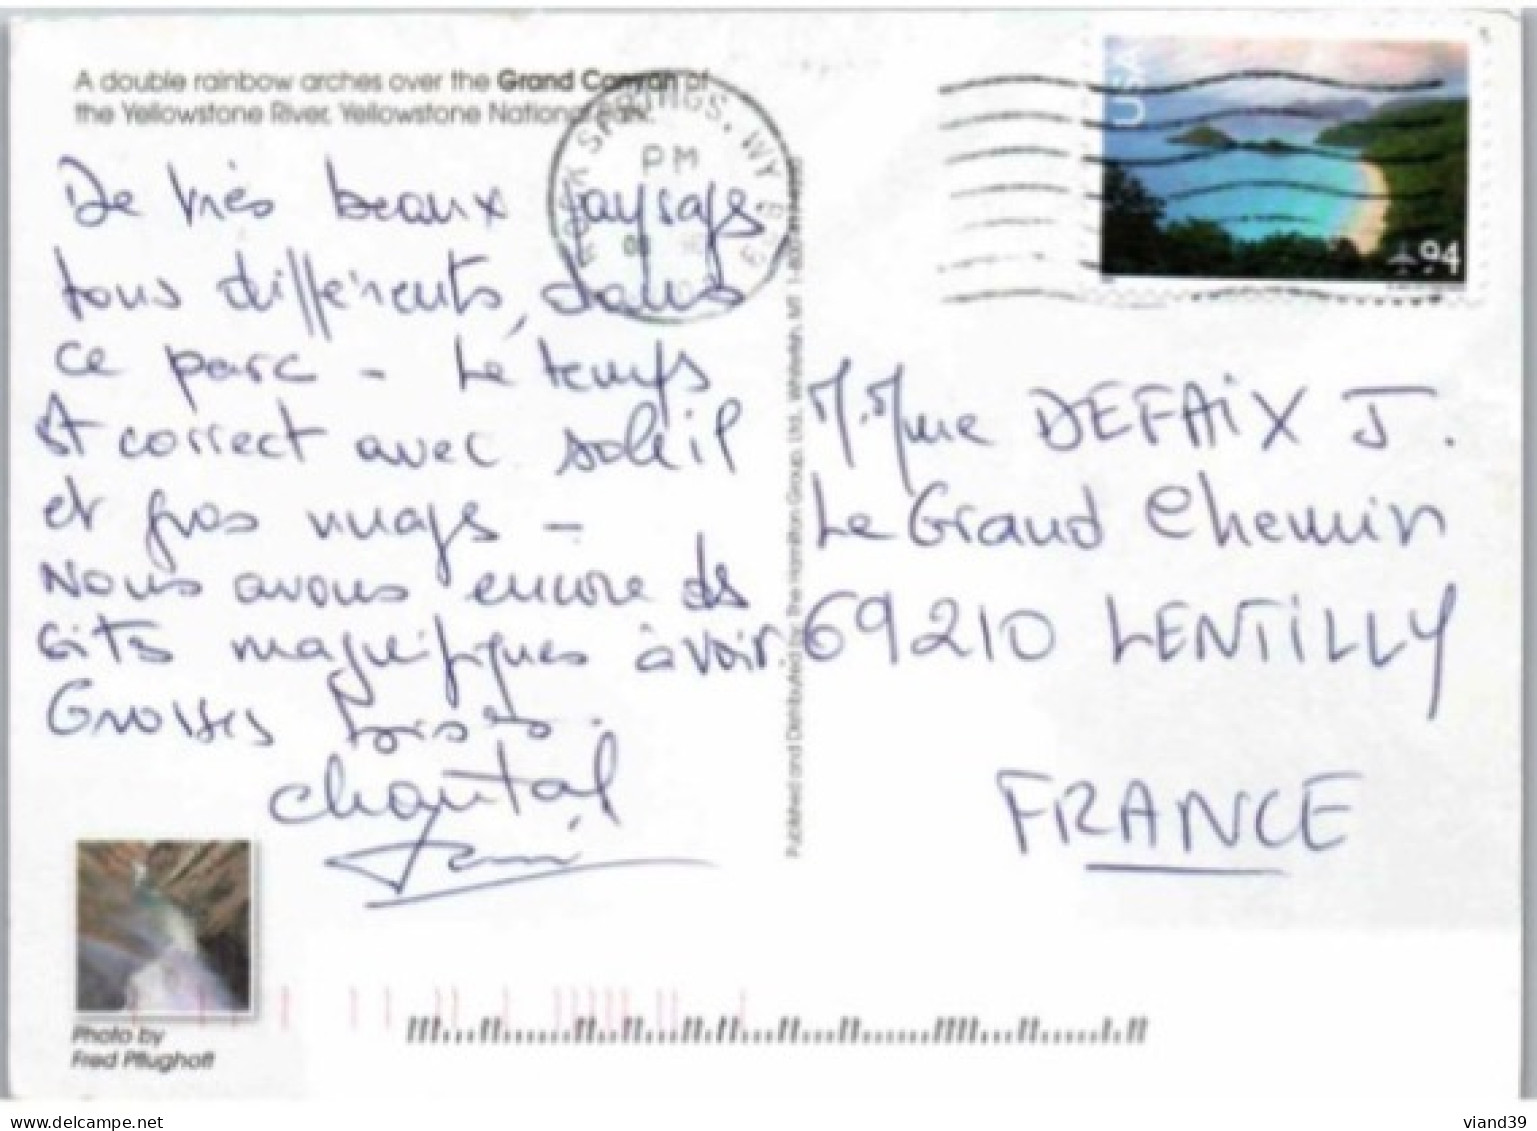 A double rainbow arches over the Grand Canyon of
the Yellowstone River, Yellowstone National Park.
De très beaux paysages
tous différents, dans
ce parc - Le temps
est correct avec soleil
et gros nuages -
Nous avons encore des
sites magnifiques à voir
Grosses bises.
Chantal
ROCK SPRINGS, WY
PM
USA
94
M. Mme DEFAIX J.
Le Grand Chemin
69210 LENTILLY
FRANCE
Published and Distributed by: The Hamilton Group, Ltd., Whitefish, MT
Photo by
Fred Pflughoft
delcampe.net
viand39